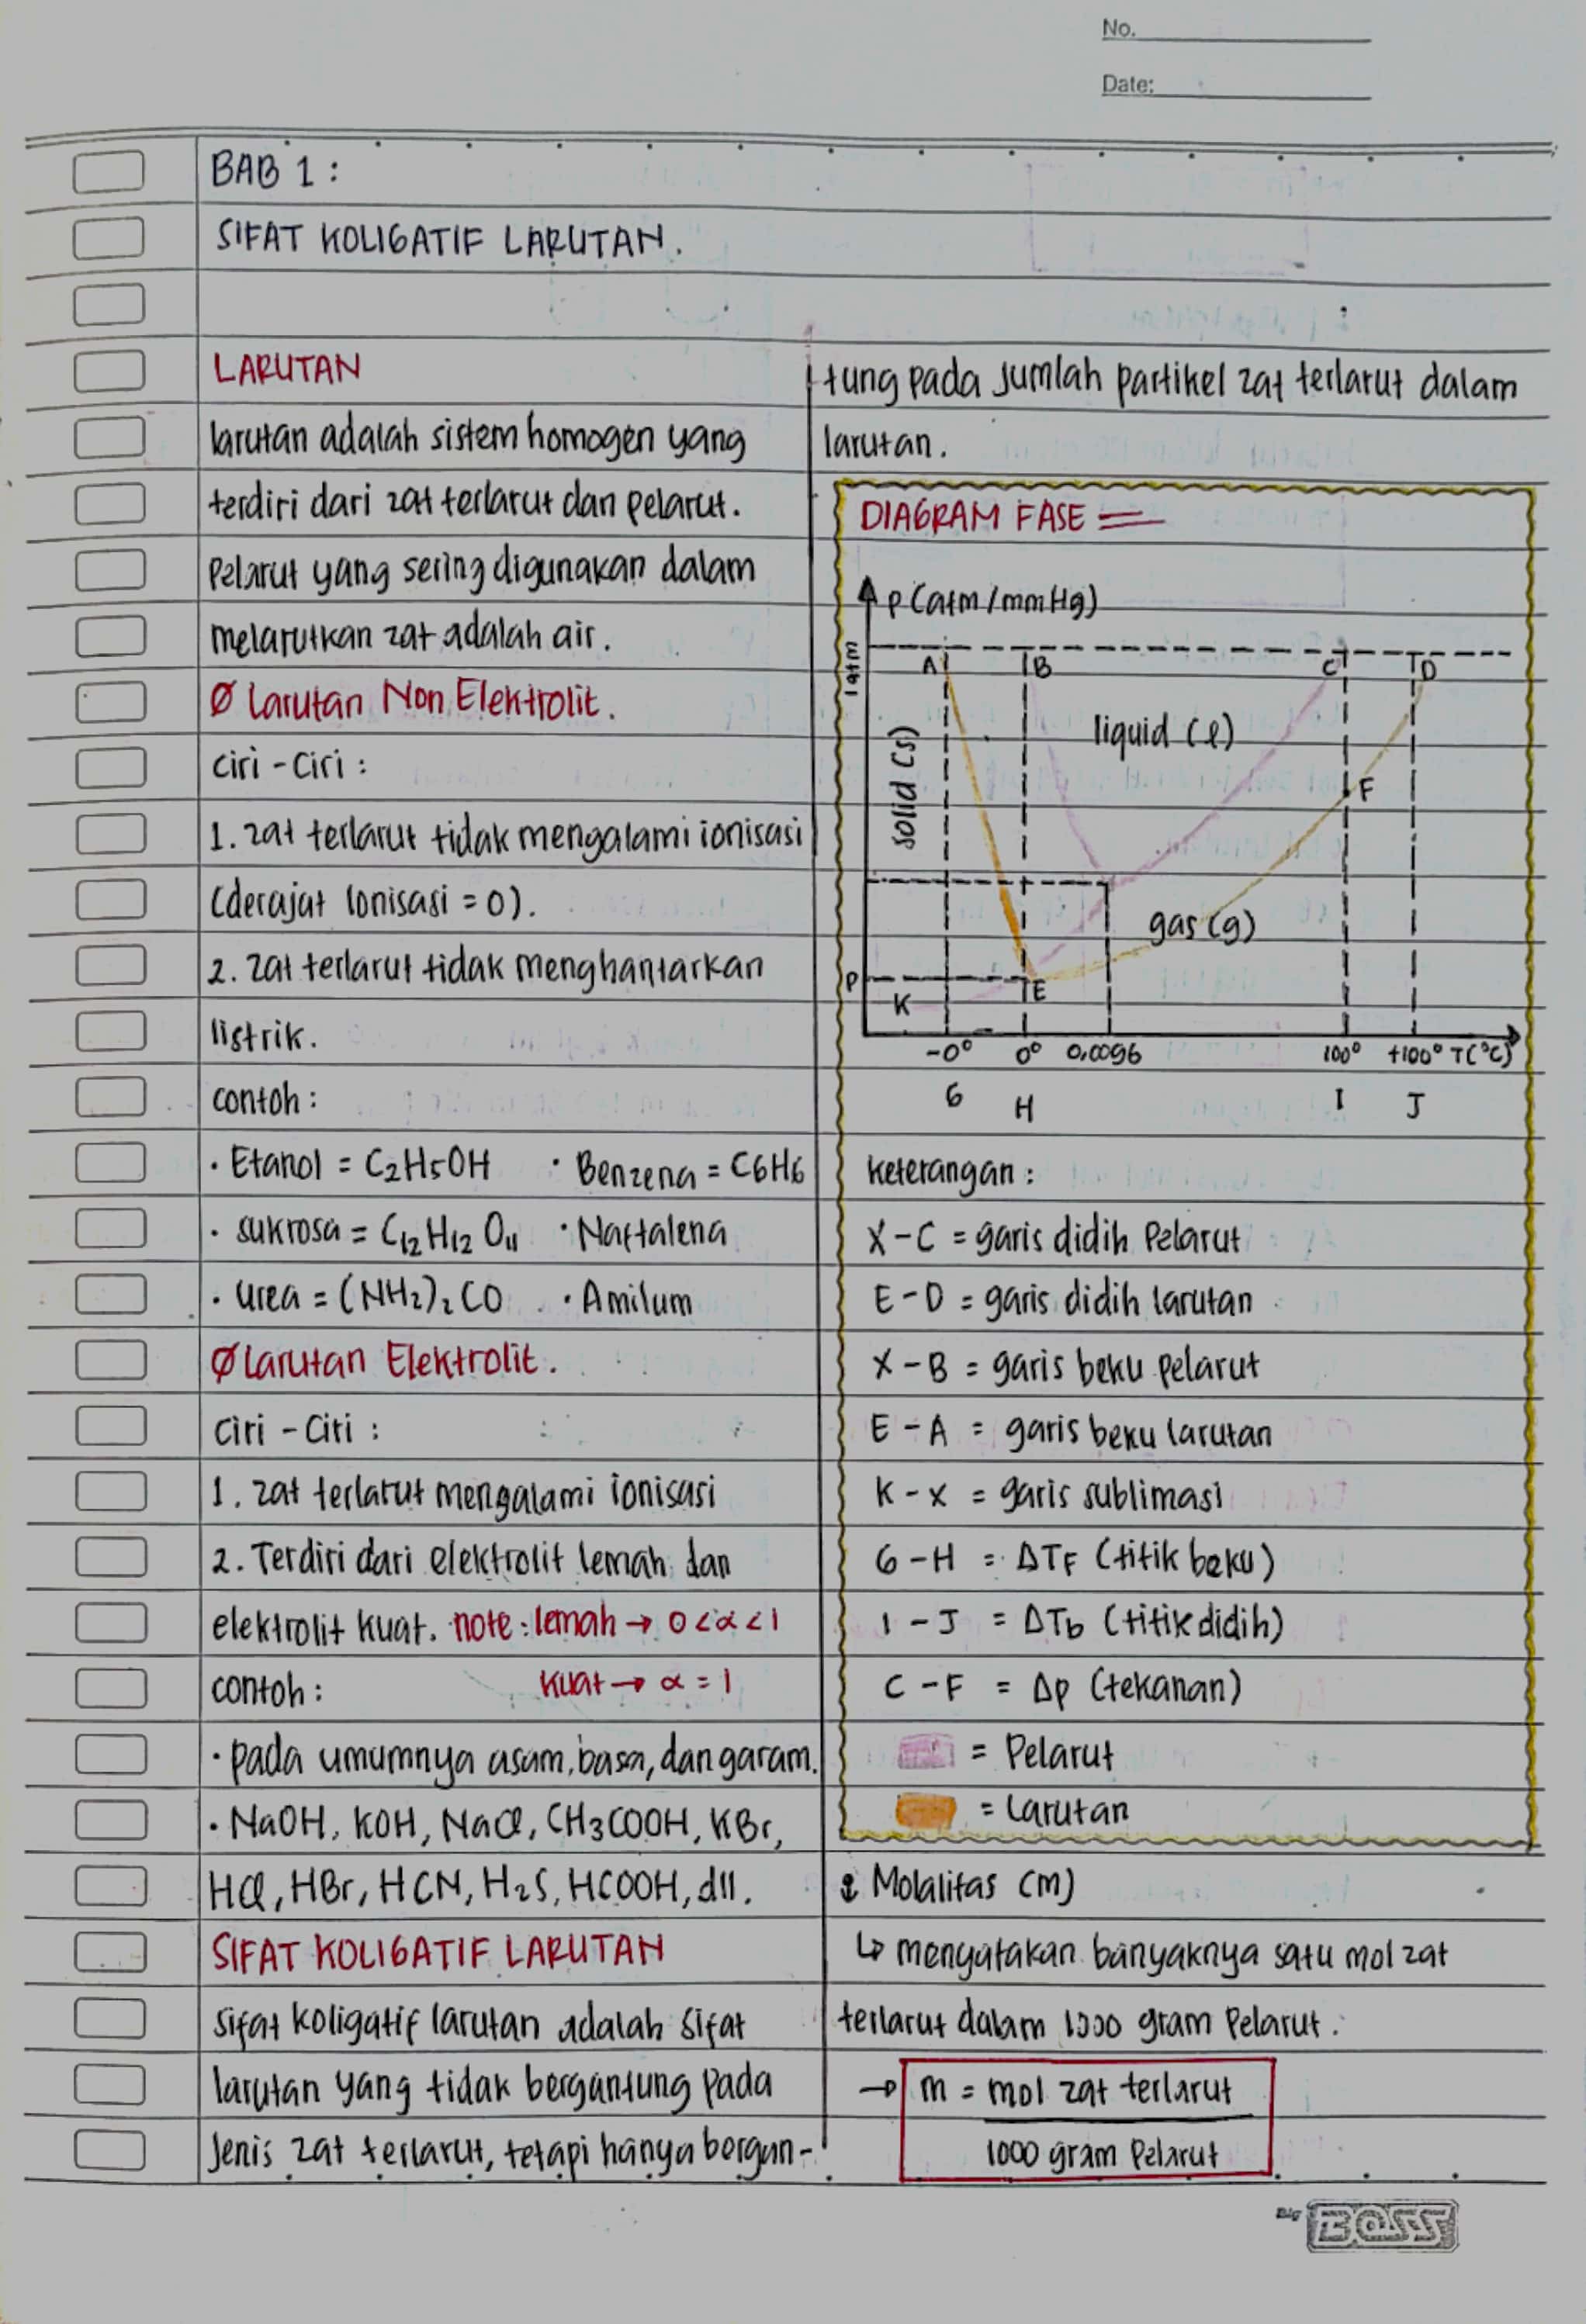 No.
Date:
BAB 1 :
SIFAT KOLIGATIF LARUTAN.
LARUTAN
larutan adalah sistem homogen yang
terdiri dari zat terlarut dan pelarut.
Pelarut yang sering digunakan dalam
melarutkan zat adalah air.
Ø Larutan Non Elektrolit.
ciri - Ciri :
1. zat terlarut tidak mengalami ionisasi
(derajat Ionisasi = 0).
2. zat terlarut tidak menghantarkan
listrik.
contoh :
• Etanol = C₂H₅OH • Benzena = C6H6
• sukrosa = C₁₂H₁₂O₁₁ • Naftalena
• Urea = (NH₂)₂CO • Amilum
Ø Larutan Elektrolit.
Ciri - Citi :
1. zat terlarut mengalami ionisasi
2. Terdiri dari elektrolit lemah dan
elektrolit kuat. note : lemah → 0 < α < 1
contoh : kuat → α = 1
• pada umumnya asam, basa, dan garam.
• NaOH, KOH, NaCl, CH₃COOH, KBr,
HCl, HBr, HCN, H₂S, HCOOH, dll.
SIFAT KOLIGATIF LARUTAN
sifat koligatif larutan adalah sifat
larutan yang tidak bergantung pada
Jenis zat terlarut, tetapi hanya bergan-
tung pada jumlah partikel zat terlarut dalam
larutan.
DIAGRAM FASE
P (atm/mmHg)
1 atm
A B C D
solid (s)
liquid (l)
F
gas (g)
P
K E
-0° 0° 0,0096 100° +100° T(°C)
G H I J
keterangan :
X - C = garis didih Pelarut
E - D = garis didih larutan
X - B = garis beku pelarut
E - A = garis beku larutan
K - X = garis sublimasi
G - H = ΔTF (titik beku)
I - J = ΔTb (titik didih)
C - F = Δp (tekanan)
= Pelarut
= Larutan
Molalitas (m)
↳ menyatakan banyaknya satu mol zat
terlarut dalam 1000 gram Pelarut.
→ m = mol zat terlarut
1000 gram Pelarut
Big BOSS